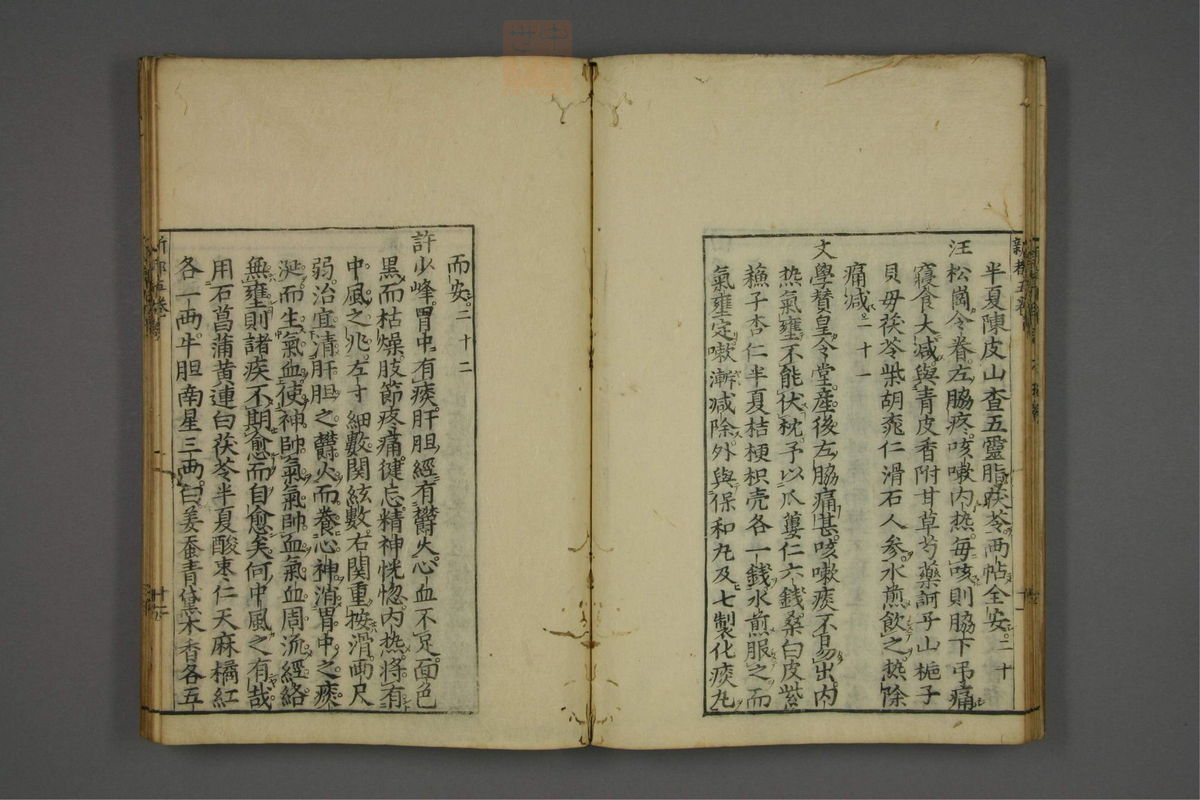 半夏陳皮山査五靈脂茯苓両帖全安二十
汪松崗令眷左脇疼咳嗽内热每咳則脇下吊痛
寝食大减與青皮香附甘草芍藥訶子山梔子
貝母茯苓柴胡桃仁滑石人参水煎飲之热除
痛减二十一
文學賛皇令堂産後左脇痛甚咳嗽痰不易出内
热氣壅不能伏枕予以爪蔞仁六錢桑白皮紫
蘓子杏仁半夏桔梗枳壳各一錢水煎服之而
氣壅定嗽漸减除外與保和丸及七製化痰丸
而安二十二
許少峰胃中有痰肝胆經有欝火心血不足面色
黒而枯燥肢節疼痛健忘精神恍惚内热將有
中風之兆左寸細數関絃數右関重按滑両尺
弱治宜清肝胆之欝火而養心神消胃中之痰
涎而生氣血使神帥氣氣帥血氣血周流經絡
無壅則諸疾不期愈而自愈矣何中風之有哉
用石菖蒲黄連白茯苓半夏酸枣仁天麻橘紅
各一両牛胆南星三両白姜蚕青黛木香各五